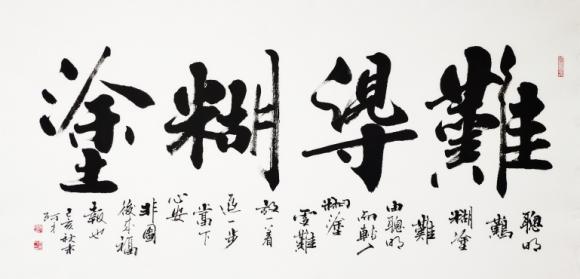 難得糊塗
聰明
難
糊塗
難
由聰明
而轉入
糊塗
更難
放一着
退一步
當下
心安
非圖
後來福
報也
己亥秋末